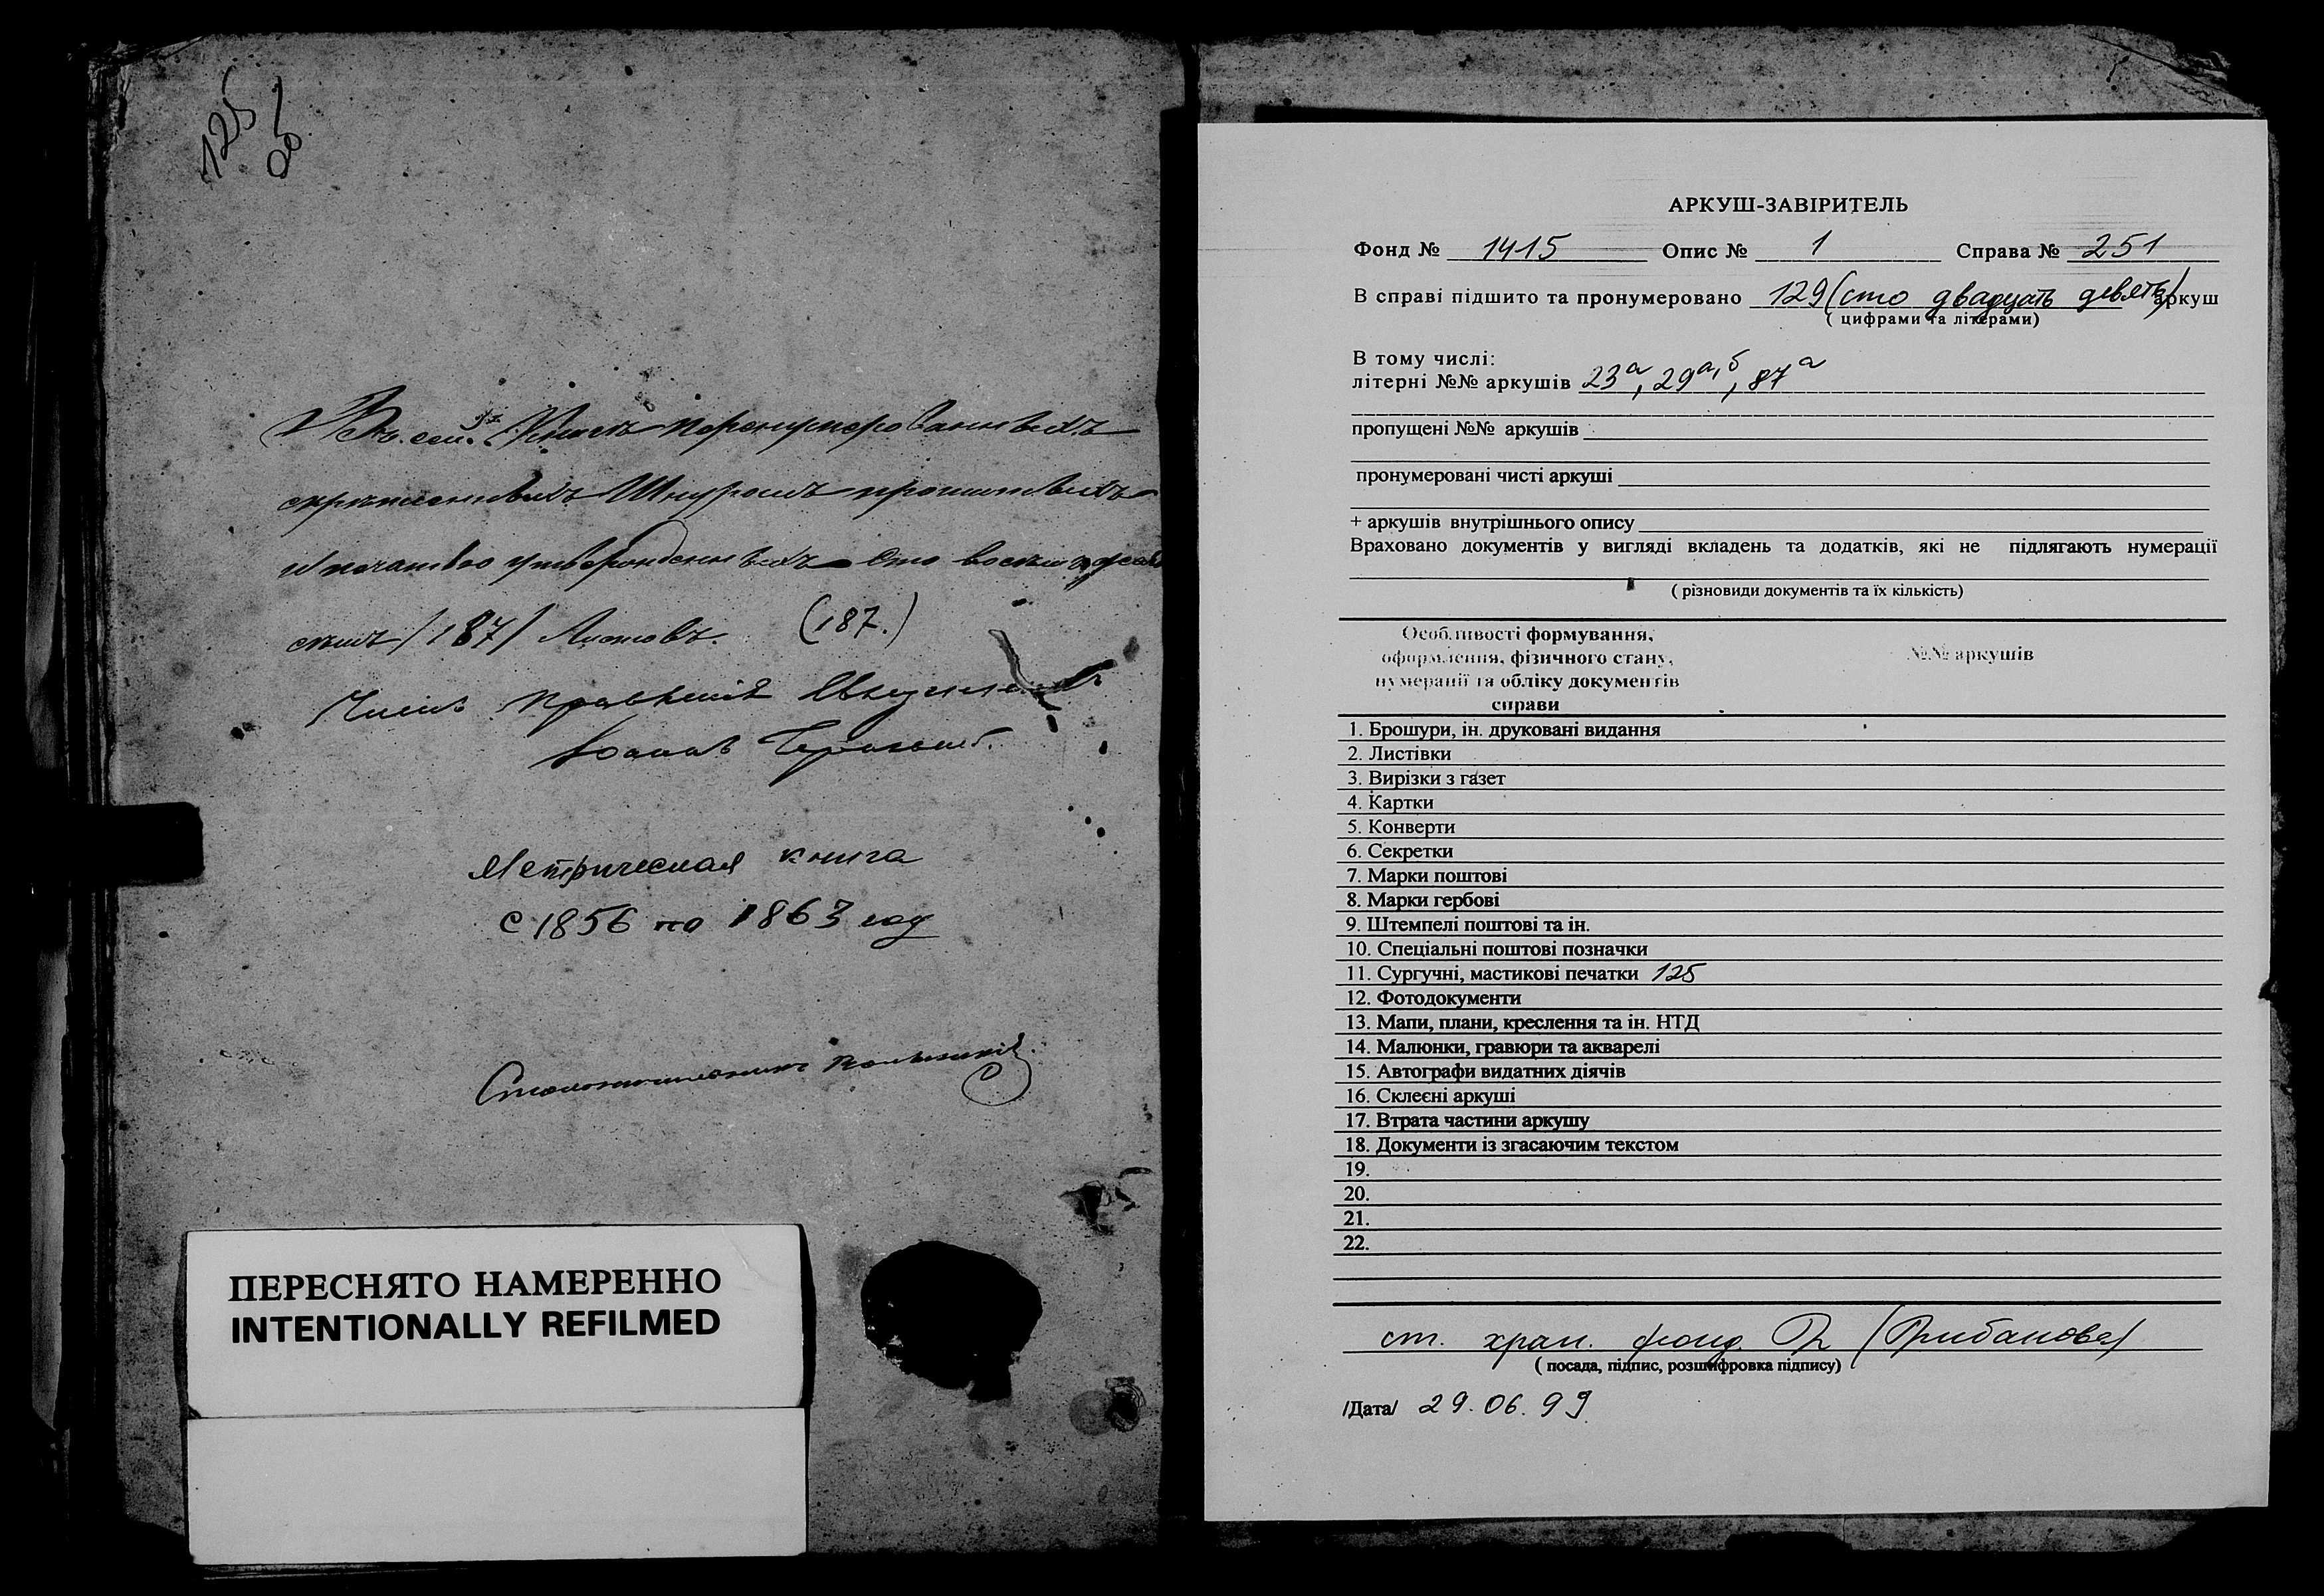 125
об.
Въ сей Книгѣ перенумерованныхъ
скрѣпленныхъ Шнуромъ прошитыхъ
и печатью утвержденныхъ Сто восемьдесят
семь /187/ Листовъ. (187.)
Членъ Правленія
Іоаннъ
Метрическая книга
с 1856 по 1863 год
Столоначальникъ
ПЕРЕСНЯТО НАМЕРЕННО
INTENTIONALLY REFILMED
АРКУШ-ЗАВІРИТЕЛЬ
Фонд № 1415 Опис № 1 Справа № 251
В справі підшито та пронумеровано 129 (сто двадцать девять) аркуш
( цифрами та літерами)
В тому числі:
літерні №№ аркушів 23а, 29а,б, 87а
пропущені №№ аркушів
пронумеровані чисті аркуші
+ аркушів внутрішнього опису
Враховано документів у вигляді вкладень та додатків, які не підлягають нумерації
( різновиди документів та їх кількість)
Особливості формування,
оформлення, фізичного стану, №№ аркушів
нумерації та обліку документів
справи
1. Брошури, ін. друковані видання
2. Листівки
3. Вирізки з газет
4. Картки
5. Конверти
6. Секретки
7. Марки поштові
8. Марки гербові
9. Штемпелі поштові та ін.
10. Спеціальні поштові позначки
11. Сургучні, мастикові печатки 125
12. Фотодокументи
13. Мапи, плани, креслення та ін. НТД
14. Малюнки, гравюри та акварелі
15. Автографи видатних діячів
16. Склеєні аркуші
17. Втрата частини аркушу
18. Документи із згасаючим текстом
19.
20.
21.
22.
ст. хран. фонд. (Грибанова)
( посада, підпис, розшифровка підпису)
/Дата/ 29.06.99